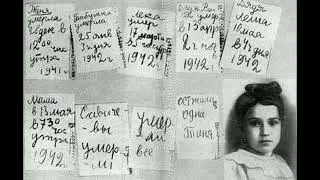 Женя
умерла
28 дек в
12 00 час
утра
1941 г
Бабушка
умерла
25 янв
3 ч дня
1942 г
Лека
умер
17 марта в
5 час утр
1942 г
Дядя Вася
умер
в 13 апр
2 ч ноч
1942 г
Дядя
Леша
10 мая
в 4 ч дня
1942 г
Мама в
13 мая
в 730
час
утра
1942 г
Савиче-
вы
умер
ли
умер
ли
все
осталась
одна
Таня